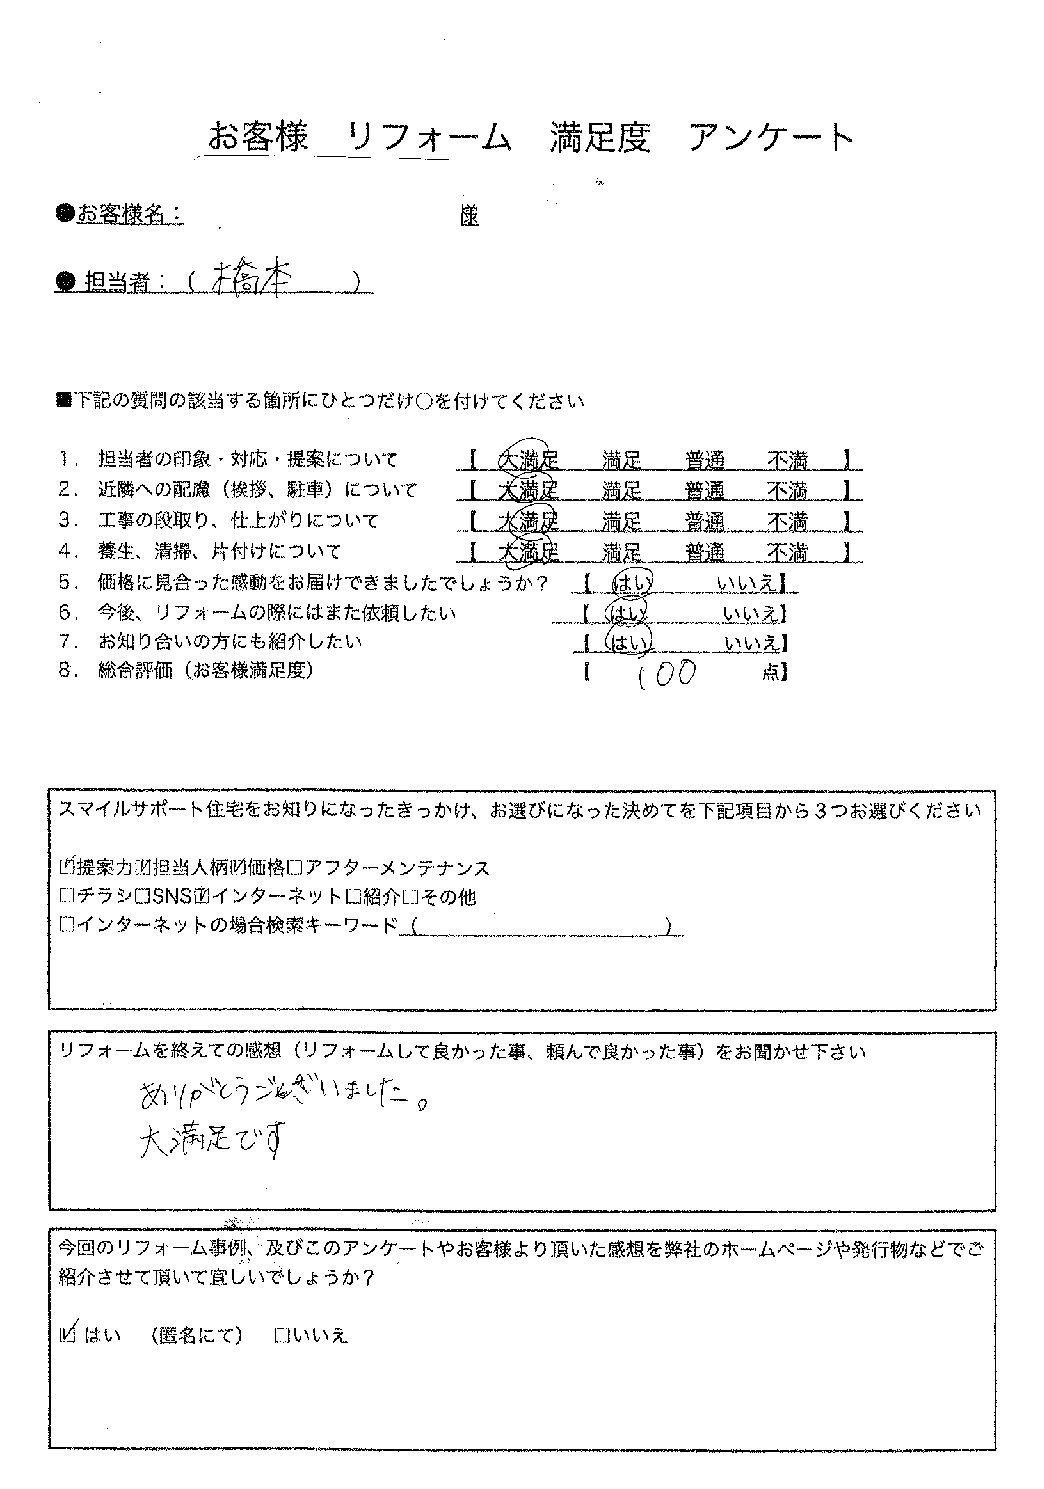 お客様 リフォーム 満足度 アンケート
●お客様名： 様
● 担当者：（ 橋本 ）
■下記の質問の該当する箇所にひとつだけ○を付けてください
1. 担当者の印象・対応・提案について 【 大満足 満足 普通 不満 】
2. 近隣への配慮（挨拶、駐車）について 【 大満足 満足 普通 不満 】
3. 工事の段取り、仕上がりについて 【 大満足 満足 普通 不満 】
4. 養生、清掃、片付けについて 【 大満足 満足 普通 不満 】
5. 価格に見合った感動をお届けできましたでしょうか？ 【 はい いいえ】
6. 今後、リフォームの際にはまた依頼したい 【 はい いいえ】
7. お知り合いの方にも紹介したい 【 はい いいえ】
8. 総合評価（お客様満足度） 【 100 点】
スマイルサポート住宅をお知りになったきっかけ、お選びになった決めてを下記項目から３つお選びください
☑提案力☑担当人柄☑価格□アフターメンテナンス
□チラシ□SNS☑インターネット□紹介□その他
□インターネットの場合検索キーワード（ ）
リフォームを終えての感想（リフォームして良かった事、頼んで良かった事）をお聞かせ下さい
ありがとうございました。
大満足です
今回のリフォーム事例、及びこのアンケートやお客様より頂いた感想を弊社のホームページや発行物などでご
紹介させて頂いて宜しいでしょうか？
☑はい （匿名にて） □いいえ